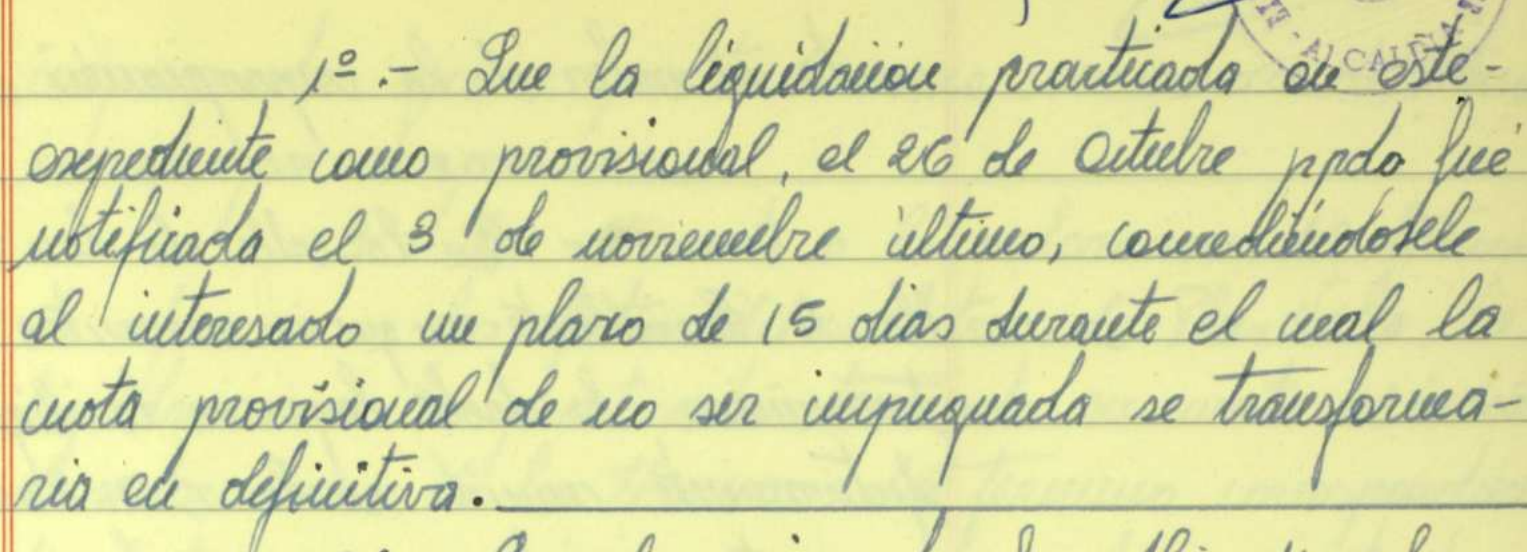 ALCALDIA
1º.- Que la liquidación practicada en este-
expediente como provisional, el 26 de Octubre ppdo fué
notificada el 3 de noviembre último, concediéndosele
al interesado un plazo de 15 dias durante el cual la
cuota provisional de no ser impugnada se transforma-
ria en definitiva.